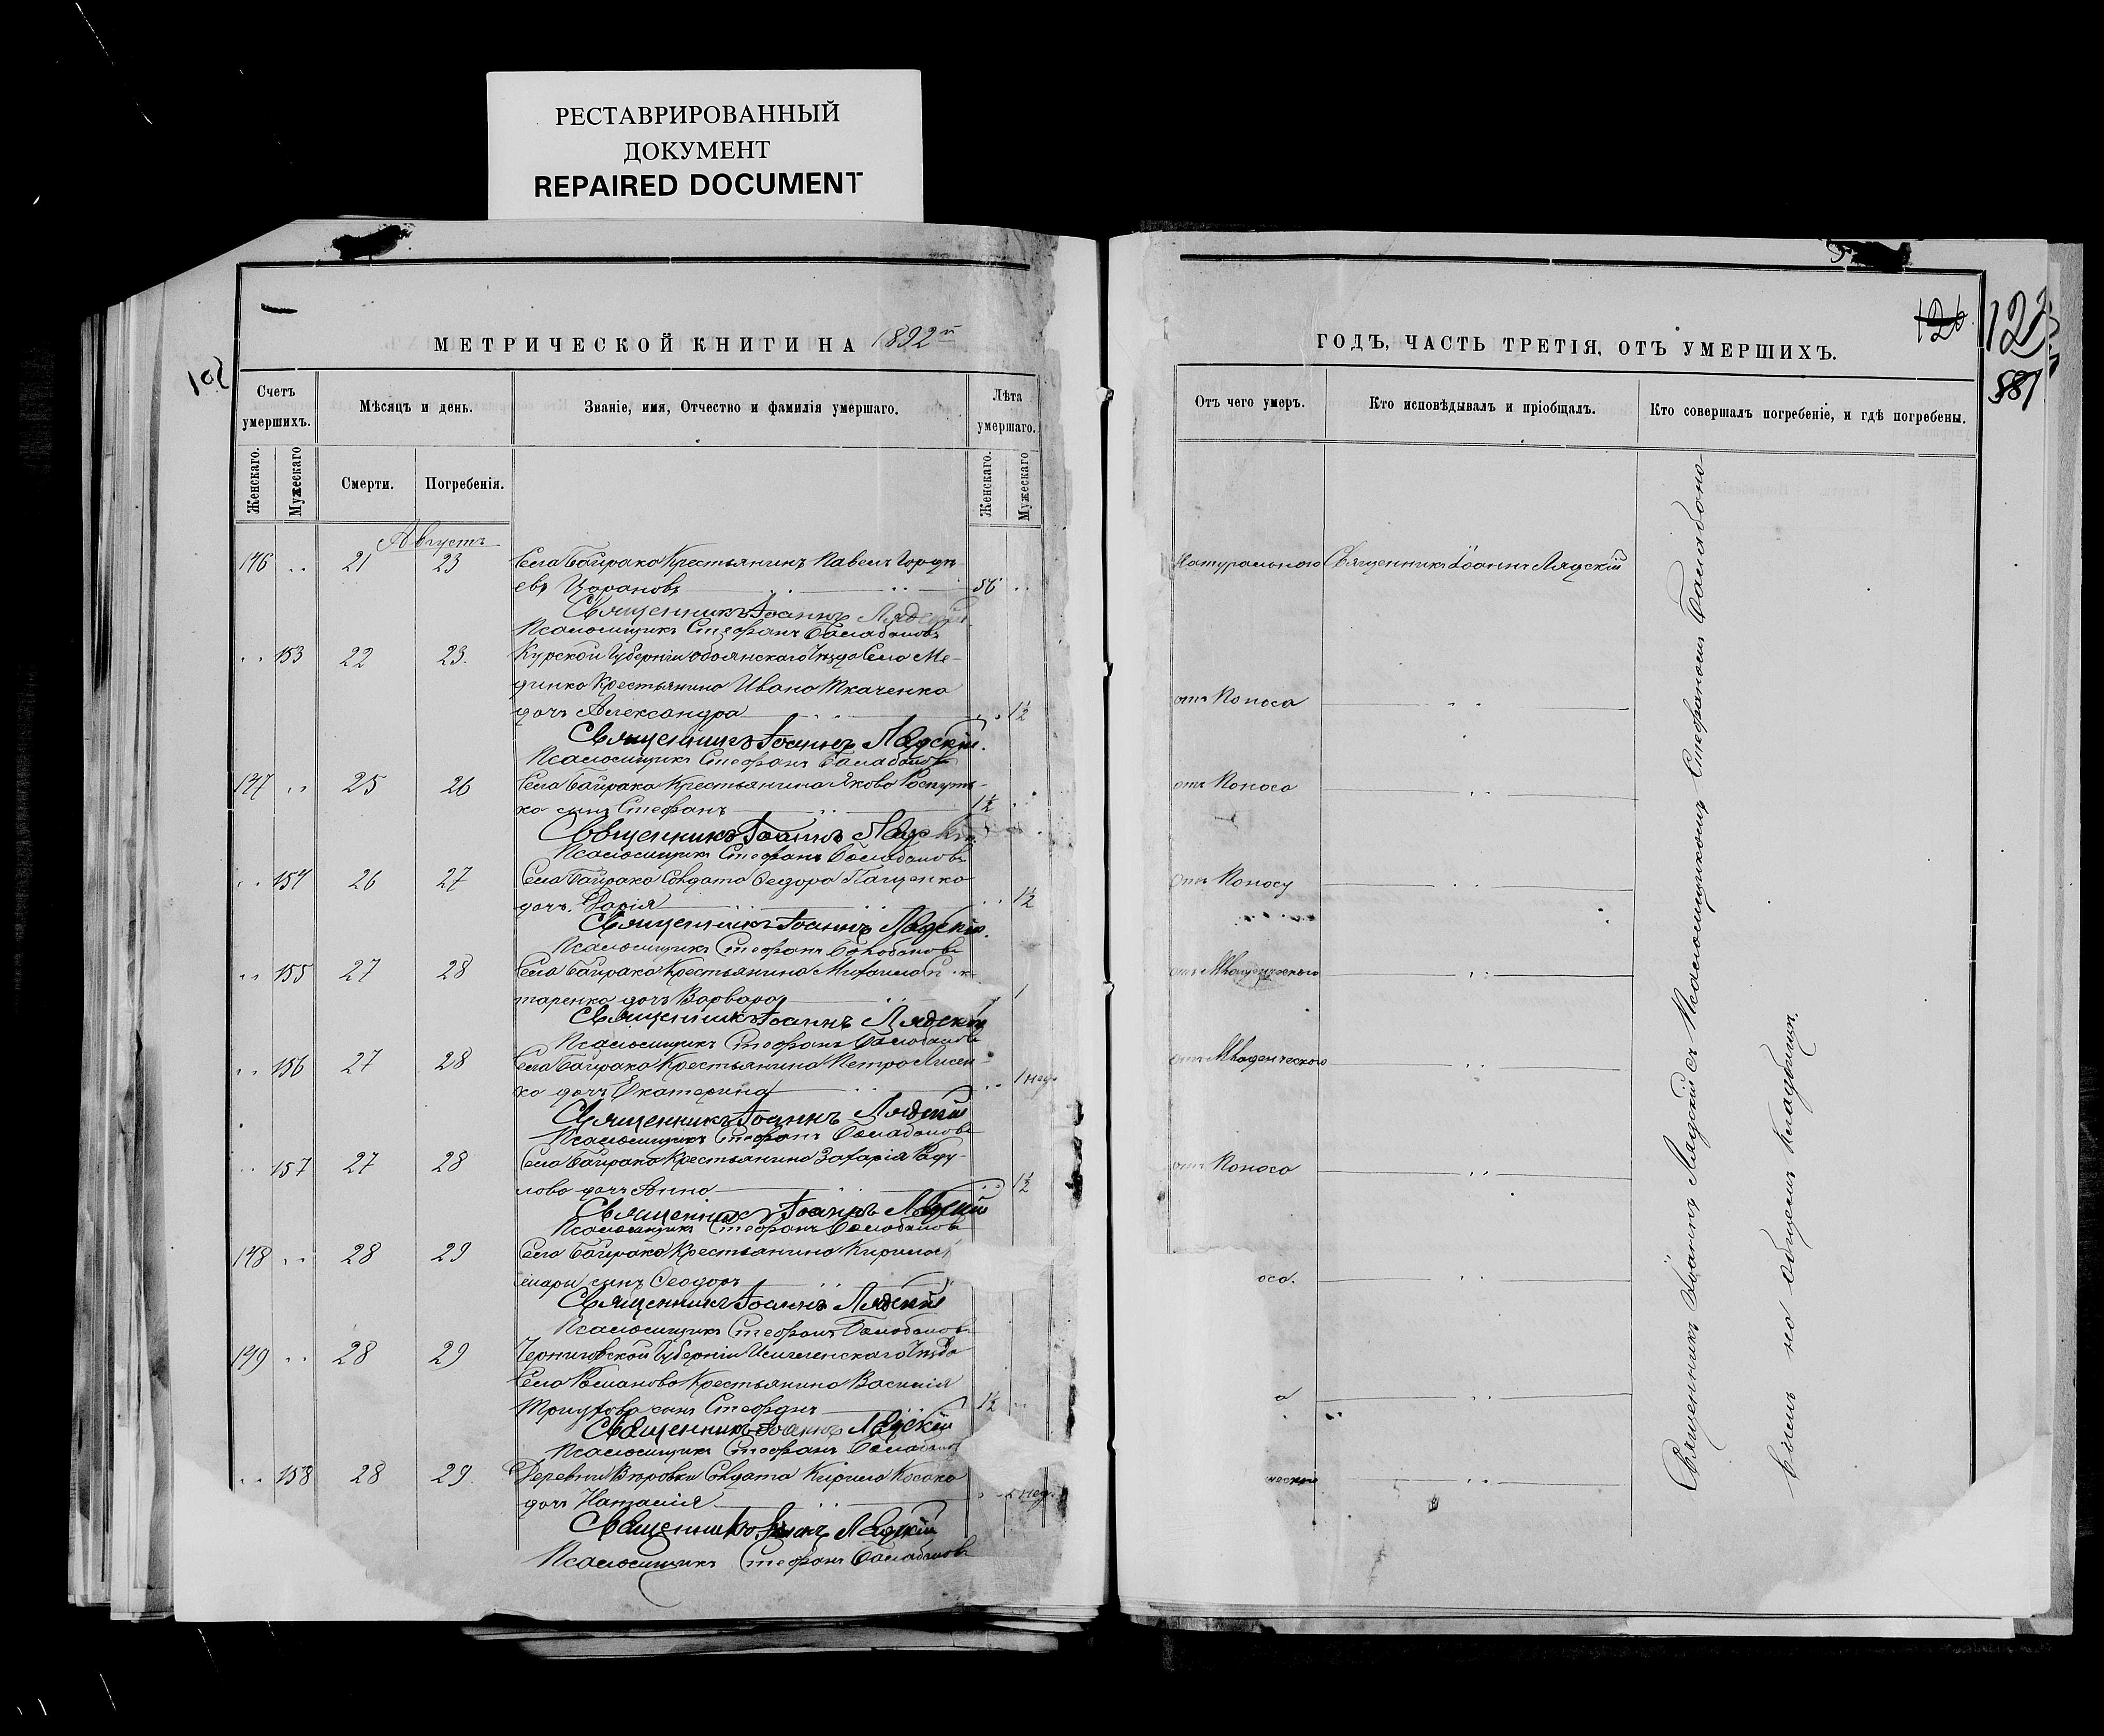 РЕСТАВРИРОВАННЫЙ
ДОКУМЕНТ
REPAIRED DOCUMENT
102
МЕТРИЧЕСКОЙ КНИГИ НА 1892й
Счетъ умершихъ.
Мѣсяцъ и день.
Званіе, имя, Отчество и фамилія умершаго.
Лѣта умершаго.
Женскаго.
Мужескаго
Смерти.
Погребенія.
Женскаго.
Мужескаго
Августъ
146 " 21 23 Села Байрака Крестьянинъ Павелъ Гордѣ-
евъ Царановъ 56 "
Священникъ Іоаннъ Лядскій
Псаломщикъ Стефанъ Балабановъ
" 153 22 23. Курской Губерніи Обоянскаго Уѣзда Села Ме-
Крестьянина Ивана Ткаченка
дочь Александра " 1½
Священникъ Іоаннъ Лядскій.
Псаломщикъ Стефанъ Балабановъ
147 " 25 26 Села Байрака Крестьянина Якова
ка сынъ Стефанъ 1½ "
Священникъ Іоаннъ Лядскій
Псаломщикъ Стефанъ Балабановъ
" 154 26 27 Села Байрака Солдата Феодора Пащенка
дочь Марія " 1½
Священникъ Іоаннъ Лядскій.
Псаломщикъ Стефанъ Балабановъ
" 155 27 28 Села Байрака Крестьянина Михаила
таренка дочь Варвара 1
Священникъ Іоаннъ Лядскій
Псаломщикъ Стефанъ Балабановъ
" 156 27 28 Села Байрака Крестьянина Петра Лисен-
ка дочь Екатерина " 1 нед.
Священникъ Іоаннъ Лядскій
Псаломщикъ Стефанъ Балабановъ
" 157 27 28 Села Байрака Крестьянина Захарія Раду-
лова дочь Анна " 1½
Священникъ Іоаннъ Лядскій
Псаломщикъ Стефанъ Балабановъ
148 " 28 29 Села Байрака Крестьянина Кирила
сынъ Феодоръ
Священникъ Іоаннъ Лядскій
Псаломщикъ Стефанъ Балабановъ
149 " 28 29 Черниговской Губерніи Уѣзда
Села Романова Крестьянина Василія
сынъ Стефанъ 1½ "
Священникъ Іоаннъ Лядскій
Псаломщикъ Стефанъ Балабановъ
" 158 28 29. Деревни Солдата Кирила Косака
дочь Наталія нед.
Священникъ Іоаннъ Лядскій
Псаломщикъ Стефанъ Балабановъ
126
123
581
ГОДЪ, ЧАСТЬ ТРЕТІЯ, ОТЪ УМЕРШИХЪ.
Отъ чего умеръ.
Кто исповѣдывалъ и пріобщалъ.
Кто совершалъ погребеніе, и гдѣ погребены.
Натуральною Священникъ Іоаннъ Лядскій
отъ Поноса "
отъ Поноса "
Отъ Поносу "
отъ Младенческаго "
отъ Младенческаго "
отъ Поноса "
оса. "
а "
ческаго "
Священникъ Іоаннъ Лядскій съ Псаломщикомъ Стефаномъ Балабано-
вымъ на общемъ кладбищѣ.